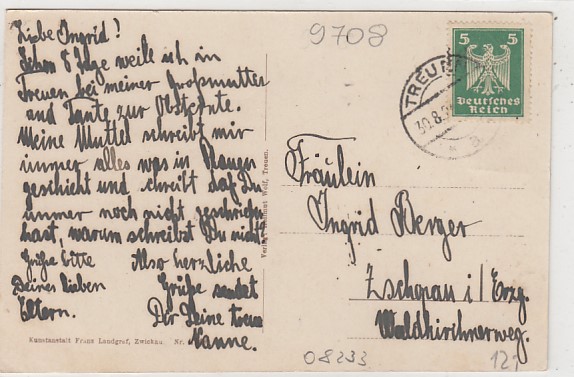 9708
Liebe Ingrid!
Schon 8 Tage weile ich in
Treuen bei meiner Großmutter
und Tante zur Obsternte.
Meine Mutter schreibt mir
immer alles was in Plauen
geschieht und schreibt daß Du
immer noch nicht geschrieben
hast, warum schreibst Du nicht?
Grüße bitte Also herzliche
Deine lieben Grüße sendet
Eltern. Dir Deine treue
Hanne.
Kunstanstalt Franz Landgraf, Zwickau. Nr.
Treuen.
TREUEN
30.8.
5 5
Deutsches
Reich
Fräulein
Ingrid Berger
Zschopau i/Erzg.
Waldkirchnerweg.
08233
12,